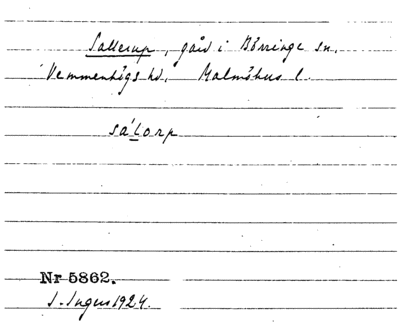 Sallerup, gård i Börringe sn.
Vemmenhögs hd. Malmöhus l.
sálorp
Nr 5862.
S. Ingers 1924.